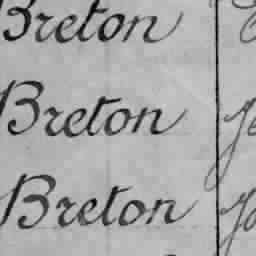 Breton
Breton
Breton